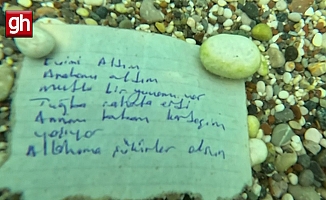 gh
Evimi Aldım
Arabamı aldım
mutlu bir yuvam var
Tuğba rahata erdi
Annem babam kardeşim
Allahıma şükürler olsun